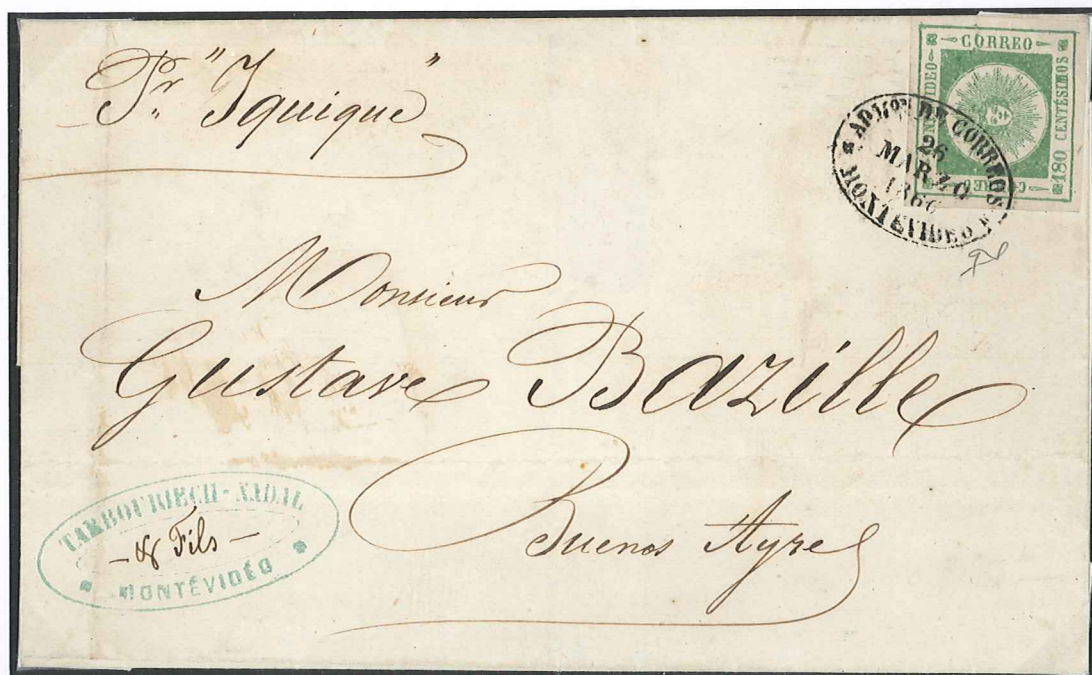 Pr "Iquique"
CORREO
MONTEVIDEO
180 CENTÉSIMOS
CORREO
ADMON DE CORREOS
26
MARZO
1866
MONTEVIDEO
Monsieur
Gustave Bazille
Buenos Ayres
TAMBOURIECH-NADAL
— & Fils —
MONTÉVIDÉO